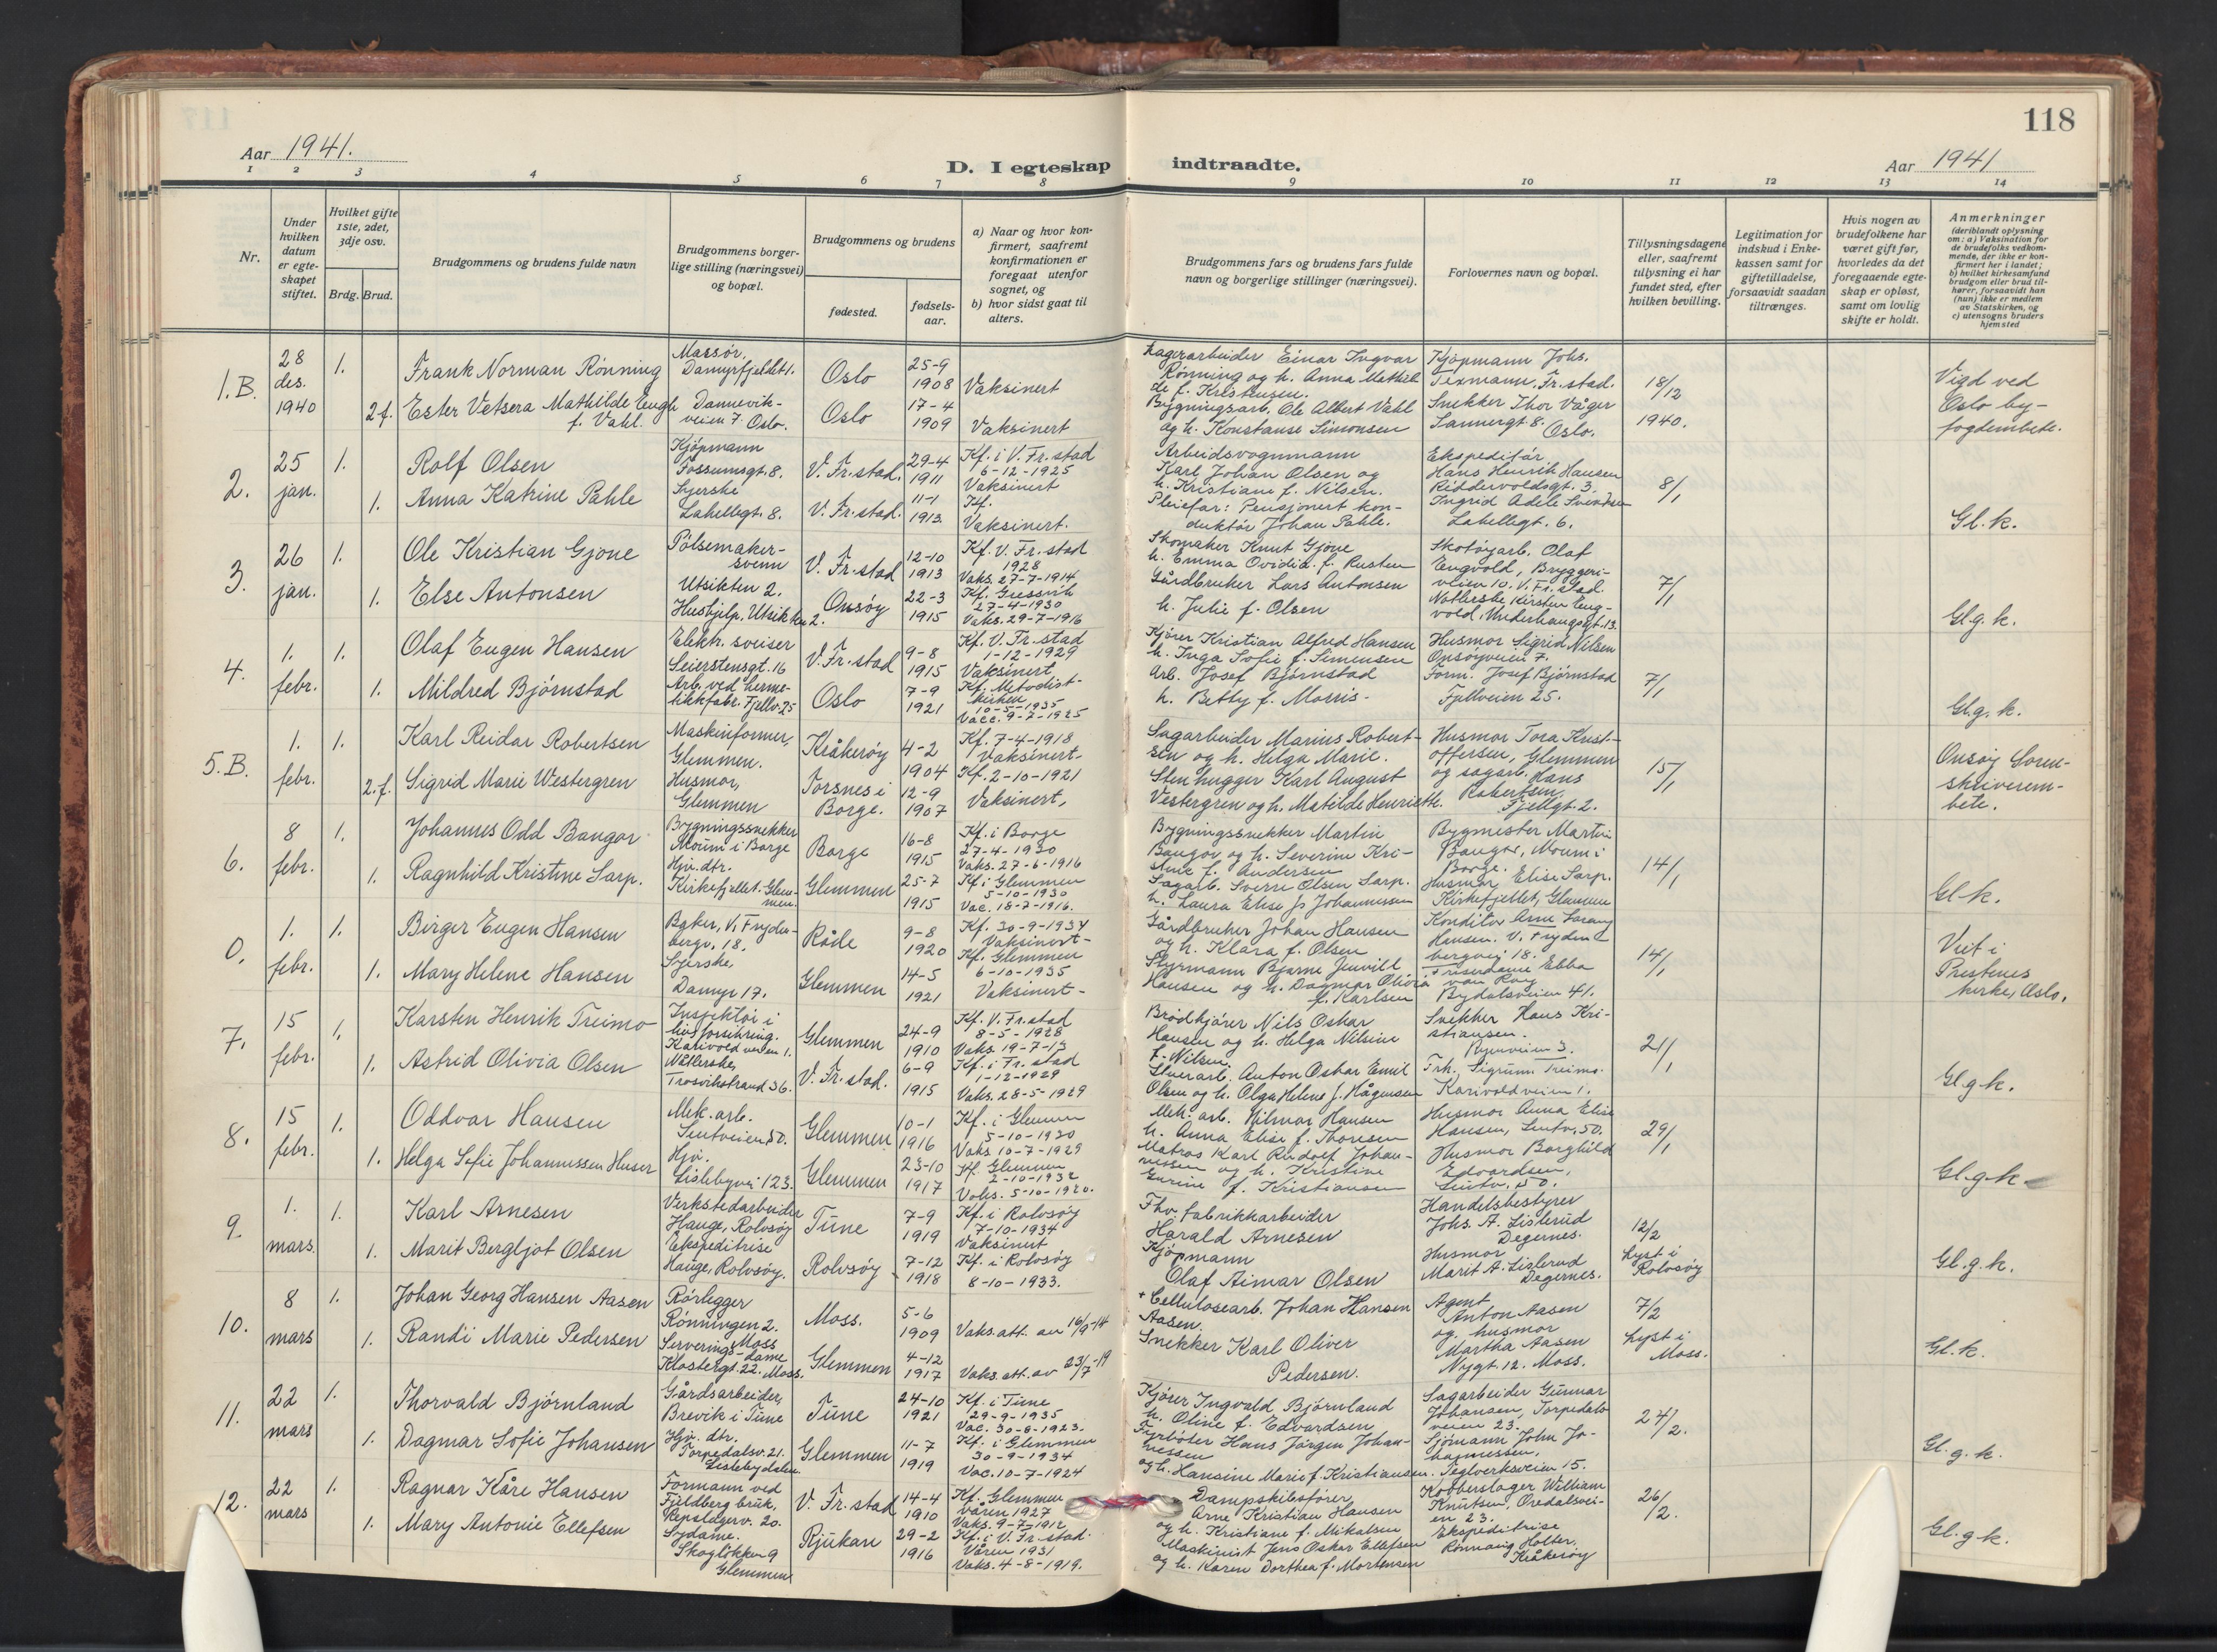 118
Aar 1941.
D. I egteskap indtraadte.
Aar 1941
1 2 3 4 5 6 7 8 9 10 11 12 13 14
Nr.
Under hvilken datum er egteskapet stiftet.
Hvilket gifte 1ste, 2det, 3dje osv.
Brdg. Brud.
Brudgommens og brudens fulde navn
Brudgommens borgerlige stilling (næringsvei) og bopæl.
Brudgommens og brudens
fødested.
fødselsaar.
a) Naar og hvor konfirmert, saafremt konfirmationen er foregaat utenfor sognet, og
b) hvor sidst gaat til alters.
Brudgommens fars og brudens fars fulde navn og borgerlige stillinger (næringsvei).
Forlovernes navn og bopæl.
Tillysningsdagene eller, saafremt tillysning ei har fundet sted, efter hvilken bevilling.
Legitimation for indskud i Enkekassen samt for giftetilladelse, forsaavidt saadan tiltrænges.
Hvis nogen av brudefolkene har været gift før, hvorledes da det foregaaende egteskap er opløst, samt om lovlig skifte er holdt.
Anmerkninger (deriblandt oplysning om: a) Vaksination for de brudefolks vedkommende, der ikke er konfirmert her i landet; b) hvilket kirkesamfund brudgom eller brud tilhører, forsaavidt han (hun) ikke er medlem av Statskirken, og c) utensogns bruders hjemsted
1.B. 28 des. 1940 1. Frank Norman Rønning Massør, Damyrfjeldet 1. Oslo 25-9 1908 Vaksinert
Lagerarbeider Einar Ingvar Rønning og h. Anna Mathilde f. Kristensen. Kjøpmann Johs. Texmann, Fr.stad. 18/12 1940. Vigd ved Oslo byfogdembete.
2 f. Ester Vetsera Mathilde Engh f. Vahl. Dannevikveien 7. Oslo. Oslo 17-4 1909 Vaksinert
Bygningsarb. Ole Albert Vahl og h. Konstanse Simonsen Snekker Thor Våger Sannergt. 8. Oslo.
2. 25 jan. 1. Rolf Olsen Kjøpmann Fossumsgt. 8. V. Fr.stad. 29-4 1911 Kf. i V. Fr.stad 6-12-1925 Vaksinert
Arbeidsvognmann Karl Johan Olsen og h. Kristiane f. Nilsen. Ekspeditør Hans Henrik Hausen Riddervoldsgt. 3. 8/1 Gl.k.
1. Anna Katrine Pahle Syerske Lahellegt. 8. V. Fr.stad. 11-1 1913. Kf. Vaksinert.
Pleiefar: Pensjonert konduktør Johan Pahle. Ingrid Adele Svendsen Lahellegt. 6.
3. 26 jan. 1. Ole Kristian Gjone Pølsemakersvenn Utsikten 2. V. Fr.stad 12-10 1913 Kf. V. Fr.stad 1928 Vaks. 27-7-1914
Skomaker Knut Gjone h. Emma Ovidia f. Rusten Skotøyarb. Olaf Engvold, Bryggeriveien 10. V. Fr.stad. 7/1 Gl.g.k.
1. Else Antonsen Hushjelp, Utsikten 2. Onsøy 22-3 1915 Kf. Gressvik 27-4-1930 Vaks. 29-7-1916
Gårdbruker Lars Antonsen h. Julie f. Olsen Nåtlerske Kirsten Engvold, Underhaugsgt. 13.
4. 1. febr. 1. Olaf Eugen Hansen Elektr. sveiser Seierstensgt. 16 V. Fr.stad 9-8 1915 Kf. V. Fr.stad 1-12-1929 Vaksinert
Kjører Kristian Alfred Hansen h. Inga Sofie f. Simensen Husmor Sigrid Nilsen Onsøyveien 7. 7/1 Gl.g.k.
1. Mildred Bjørnstad Arb. ved hermetikkfabr. Fjellv. 25 Oslo 7-9 1921 Kf. Metodistkirken 10-5-1935 Vacc. 9-7-1925
Arb. Josef Bjørnstad h. Betty f. Morris- Form. Josef Bjørnstad Fjellveien 25.
5.B. 1. febr. 1. Karl Reidar Robertsen Maskinformer, Glemmen. Kråkerøy 4-2 1904 Kf. 7-4-1918 Vaksinert-
Sagarbeider Marius Robertsen og h. Helga Marie. Husmor Tora Kristoffersen, Glemmen 15/1 Onsøy Sorenskriverembete.
2.f. Sigrid Marie Westergren Husmor, Glemmen Torsnes i Borge. 12-9 1907 Kf. 2-10-1921 Vaksinert,
Stenhugger Karl August Vestergren og h. Matilde Henriette. og sagarb. Hans Robertsen, Fjellgt. 2.
6. 8 febr. 1. Johannes Odd Bangor Bygningssnekker Moum i Borge Borge 16-8 1915 Kf. i Borge 27-4-1930 Vaks. 27-6-1916
Bygningssnekker Martin Bangor og h. Severine Kristine f. Andersen Bygmester Martin Bangor, Moum i Borge. 14/1 Gl-k.
1. Ragnhild Kristine Sarp. Hjv. dtr. Kirkefjellet. Glemmen. Glemmen 25-7 1915 Kf. i Glemmen 5-10-1930 Vac. 18-7-1916.
Sagarb. Sverre Olsen Sarp. h. Laura Elise f. Johannessen Husmor Elise Sarp. Kirkefjellet, Glemmen
0. 1. febr. 1. Birger Eugen Hansen Baker, V. Frydenbergv. 18. Råde 9-8 1920 Kf. 30-9-1934 Vaksinert-
Gårdbruker Johan Hansen og h. Klara f. Olsen Konditor Arne Hansen. V. Frydenbergvei 18. 14/1 Viet i Prestenes kirke, Oslo.
1. Mary Helene Hansen Syerske, Damyr 17. Glemmen 14-5 1921 Kf. Glemmen 6-10-1935 Vaksinert-
Styrmann Bjarne Hansen og h. Dagmar Olivia f. Karlsen Friserdame Ebba Bydalsveien 41.
7. 15 febr. 1. Karsten Henrik Treimo Inspektør i livsforsikring. Karivoldveien 1. Glemmen 24-9 1910 Kf. V. Fr.stad 8-5-1928 Vaks. 19-7-13
Brødkjører Nils Oskar Hansen og h. Helga Nilsine f. Nilsen Snekker Hans Kristiansen. 3. 21/1 Gl.g.k.
1. Astrid Olivia Olsen Nåtlerske, Trosvikstrand 36. V. Fr.stad. 6-9 1915 Kf. i Fr.stad 1-12-1929 Vaks. 28-5-1929
Anton Oskar Emil Olsen og h. Olga Helene f. Hågensen Frk. Sigrunn Treimo. Karivoldveien 1.
8. 15 febr. 1. Oddvar Hansen Mek. arb. Leutveien 50. Glemmen 10-1 1916 Kf. i Glemmen 5-10-1930 Vaks 10-7-1929
Mek. arb. Hilmar Hansen h. Anna Elise f. Thoresen Husmor Anna Elise Hansen, Leutv. 50. 29/1 Gl.g.k-
1. Helga Sofie Johannessen Huser Hjv. Lislebyvei 123. Glemmen 23-10 1917 Kf. Glemmen 2-10-1932 Vaks. 5-10-1920.
Matros Karl Rudolf Johannessen og h. Kristine Gurine f. Kristiansen Husmor Borghild Edvardsen, Leutv. 50.
9. 1. mars. 1. Karl Arnesen Verkstedarbeider Hauge, Rolvsøy Tune 7-9 1919 Kf. i Rolvsøy 7-10-1934 Vaksinert
Fhv. fabrikkarbeider Harald Arnesen Handelsbestyrer Johs. A. Lislerud Degernes. 12/2 Lyst i Rolvsøy Gl.g.k.
1. Marit Bergljot Olsen Ekspeditrise Hauge, Rolvsøy. Rolvsøy 7-12 1918 Kf. i Rolvsøy 8-10-1933.
Kjøpmann Olaf Aimar Olsen Husmor Marit A. Lislerud Degernes.
10. 8 mars 1. Johan Georg Hansen Aasen Rørlegger Rønningen 2. Moss Moss. 5-6 1909 Vaks.att. av 16/9-14
+ Cellulosearb. Johan Hansen Aasen. Agent Anton Aasen 7/2 Lyst i Moss. Gl.k.
1. Randi Marie Pedersen Serveringsdame Klostergt. 22. Moss. Glemmen 4-12 1917 Vaks.att. av 23/7-19
Snekker Karl Oliver Pedersen. og husmor Martha Aasen Nygt. 12. Moss.
11. 22 mars 1. Thorvald Bjørnland Gårdsarbeider, Brevik i Tune Tune 24-10 1921 Kf. i Tune 29-9-1935 Vac. 30-8-1923.
Kjører Ingvald Bjørnland h. Oline f. Edvardsen Sagarbeider Gunnar Johansen, Torpedalsveien 23. 24/2. Gl.g.k.
1. Dagmar Sofie Johansen Hjv. dtr. Torpedalsv. 21. Lislebydalen. Glemmen 11-7 1919 Kf. i Glemmen 30-9-1934 Vac. 10-7-1924
Fyrbøter Hans Jørgen Johannessen og h. Hansine Marie f. Kristiansen. Sjømann John Johannessen, Teglverksveien 15.
12. 22 mars 1. Ragnar Kåre Hansen Formann ved Fjeldberg bruk, Repslagerv. 20. V. Fr.stad 14-4 1910 Kf. Glemmen våren 1927 Vaks. 9-7-1912
Dampskibsfører Arne Kristian Hansen og h. Kristiane f. Mikalsen Kobberslager William Knutsen, Oredalsveien 23. 26/2. Gl.g.k.
1. Mary Antonie Ellefsen Sydame. Skogløkken 9 Glemmen Rjukan 29-2 1916 Kf. i V. Fr.stad. Våren 1931 Vaks. 4-8-1919.
Maskinist Jens Oskar Ellefsen og h. Karen Dorthea f. Mortensen Ekspeditrise Rønnaug Holter. Kråkerøy